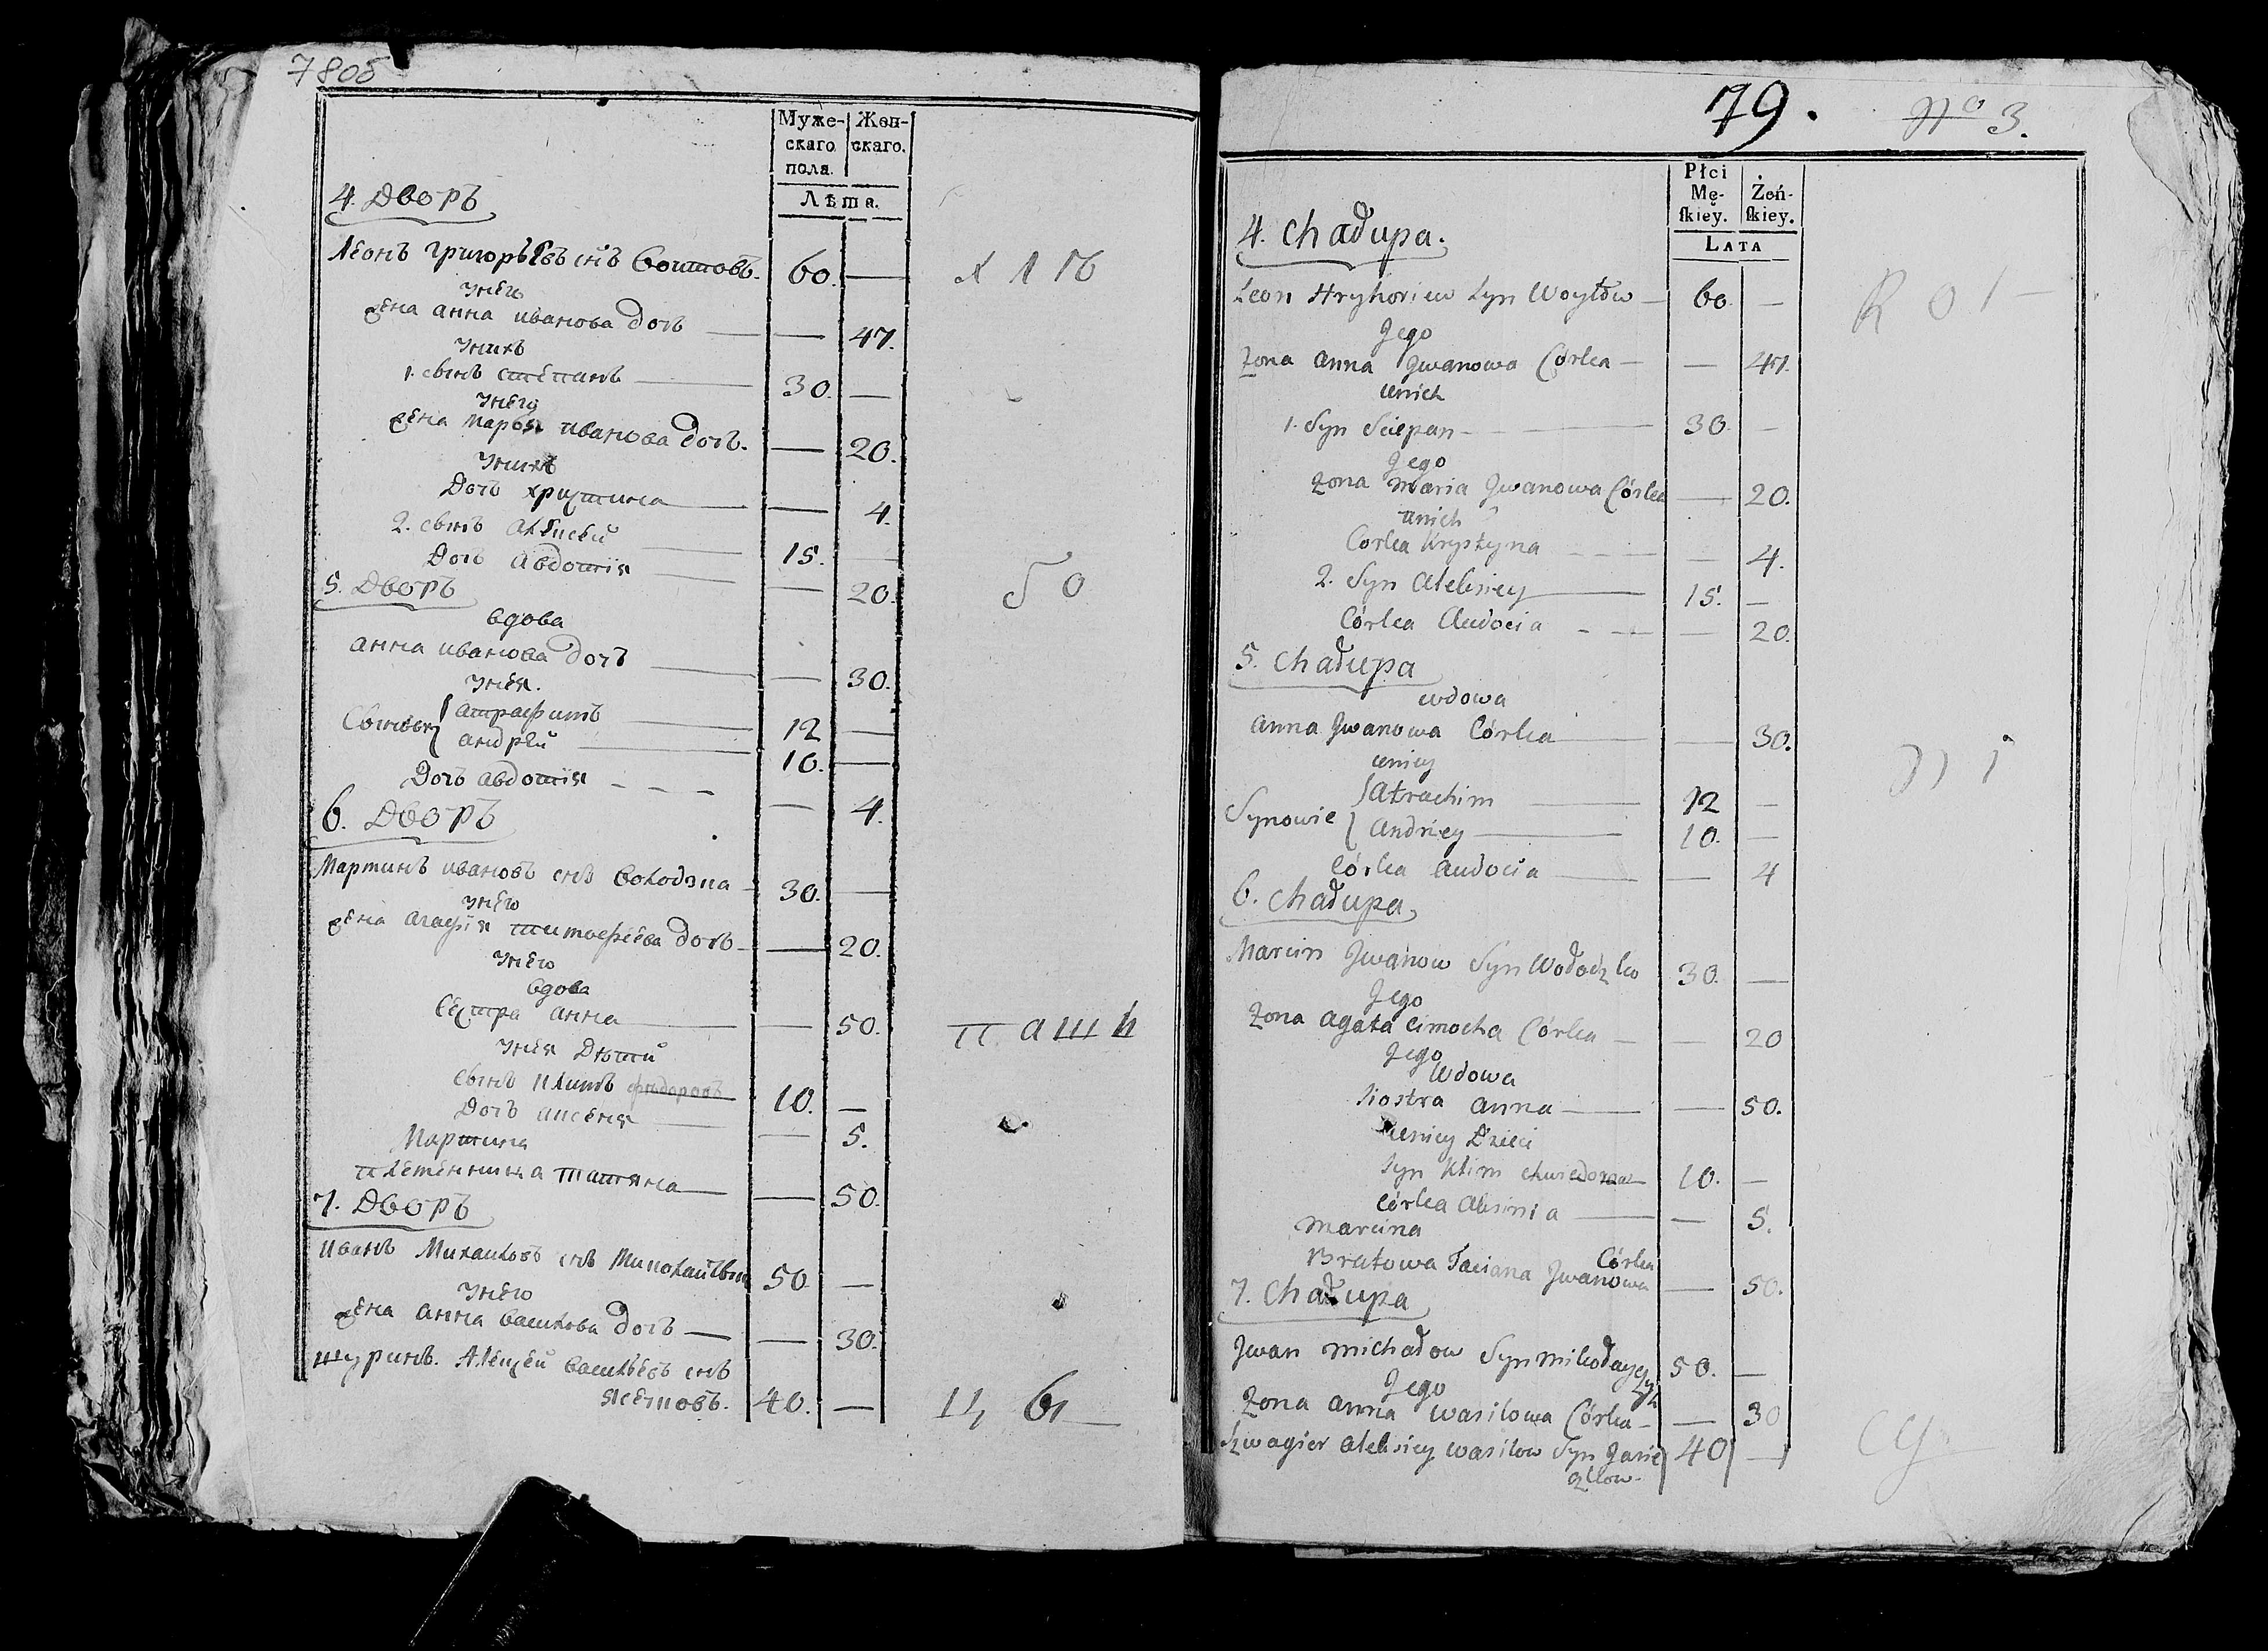 78об
Муже- Жен-
скаго скаго.
пола.
Лѣта.
4. Дворъ
Леонъ Григорьевъ снъ Войтовъ. 60. —
у него
жена анна иванова дочь — — 47.
у нихъ
1. сынъ степанъ — 30. —
у него
жена марья иванова дочь. — 20.
у нихъ
Дочь христина — — 4.
2. сынъ алексей — 15. —
Дочь авдотія — — 20.
5. Дворъ
вдова
анна иванова дочь — — 30.
у нея.
Сыновья { атрафимъ — 12 —
андрей — 10. —
Дочь авдотія - - - — 4.
6. Дворъ
Мартинъ ивановъ снъ Володзка 30. —
у него
жена агафія тимофеева дочь — — 20.
у него
вдова
сестра анна — — 50.
у нея дѣти
сынъ климъ фидоровъ 10. —
Дочь аксеня — — 5.
Мартина
племенница татяна — — 50.
7. Дворъ
иванъ Михайловъ снъ 50. —
у него
жена анна василова дочь — — 30.
шуринъ. Алексей васильевъ снъ
40. —
б о
п а ш н
ц ы
79. no 3.
Płci
Mę- Żeń-
skiey. skiey.
LATA
4. Chałupa.
Leon Hryhoriew Syn Woytow — 60. —
Jego
Żona Anna Jwanowa Córka — — 47.
u nich
1. Syn Sciepan — 30. —
Jego
Żona Maria Jwanowa Córka — 20.
u nich
Corka Krystyna — — 4.
2. Syn Aleksiey — 15. —
Córka Audocia — — 20.
5. Chałupa
wdowa
Anna Jwanowa Córka — — 30.
u niey
Synowie { Atrachim — 12 —
Andriey — 10. —
Córka Audocia — — 4
6. Chałupa.
Marcin Jwanow Syn Wołodzko 30. —
Jego
Żona Agata Cimocha Córka — — 20
Jego
Wdowa
Siostra Anna — — 50.
u niey Dzieci
Syn Klim Chwiedorow 10. —
Córka Aksinia — — 5.
Marcina
Bratowa Taciana Jwanowa Córka — 50.
7. Chałupa
Jwan Michałow Syn Mikołayczyk 50. —
Jego
Żona Anna Wasilowa Córka — — 30
Szwagier Aleksiey Wasilow Syn Jasie 40 —